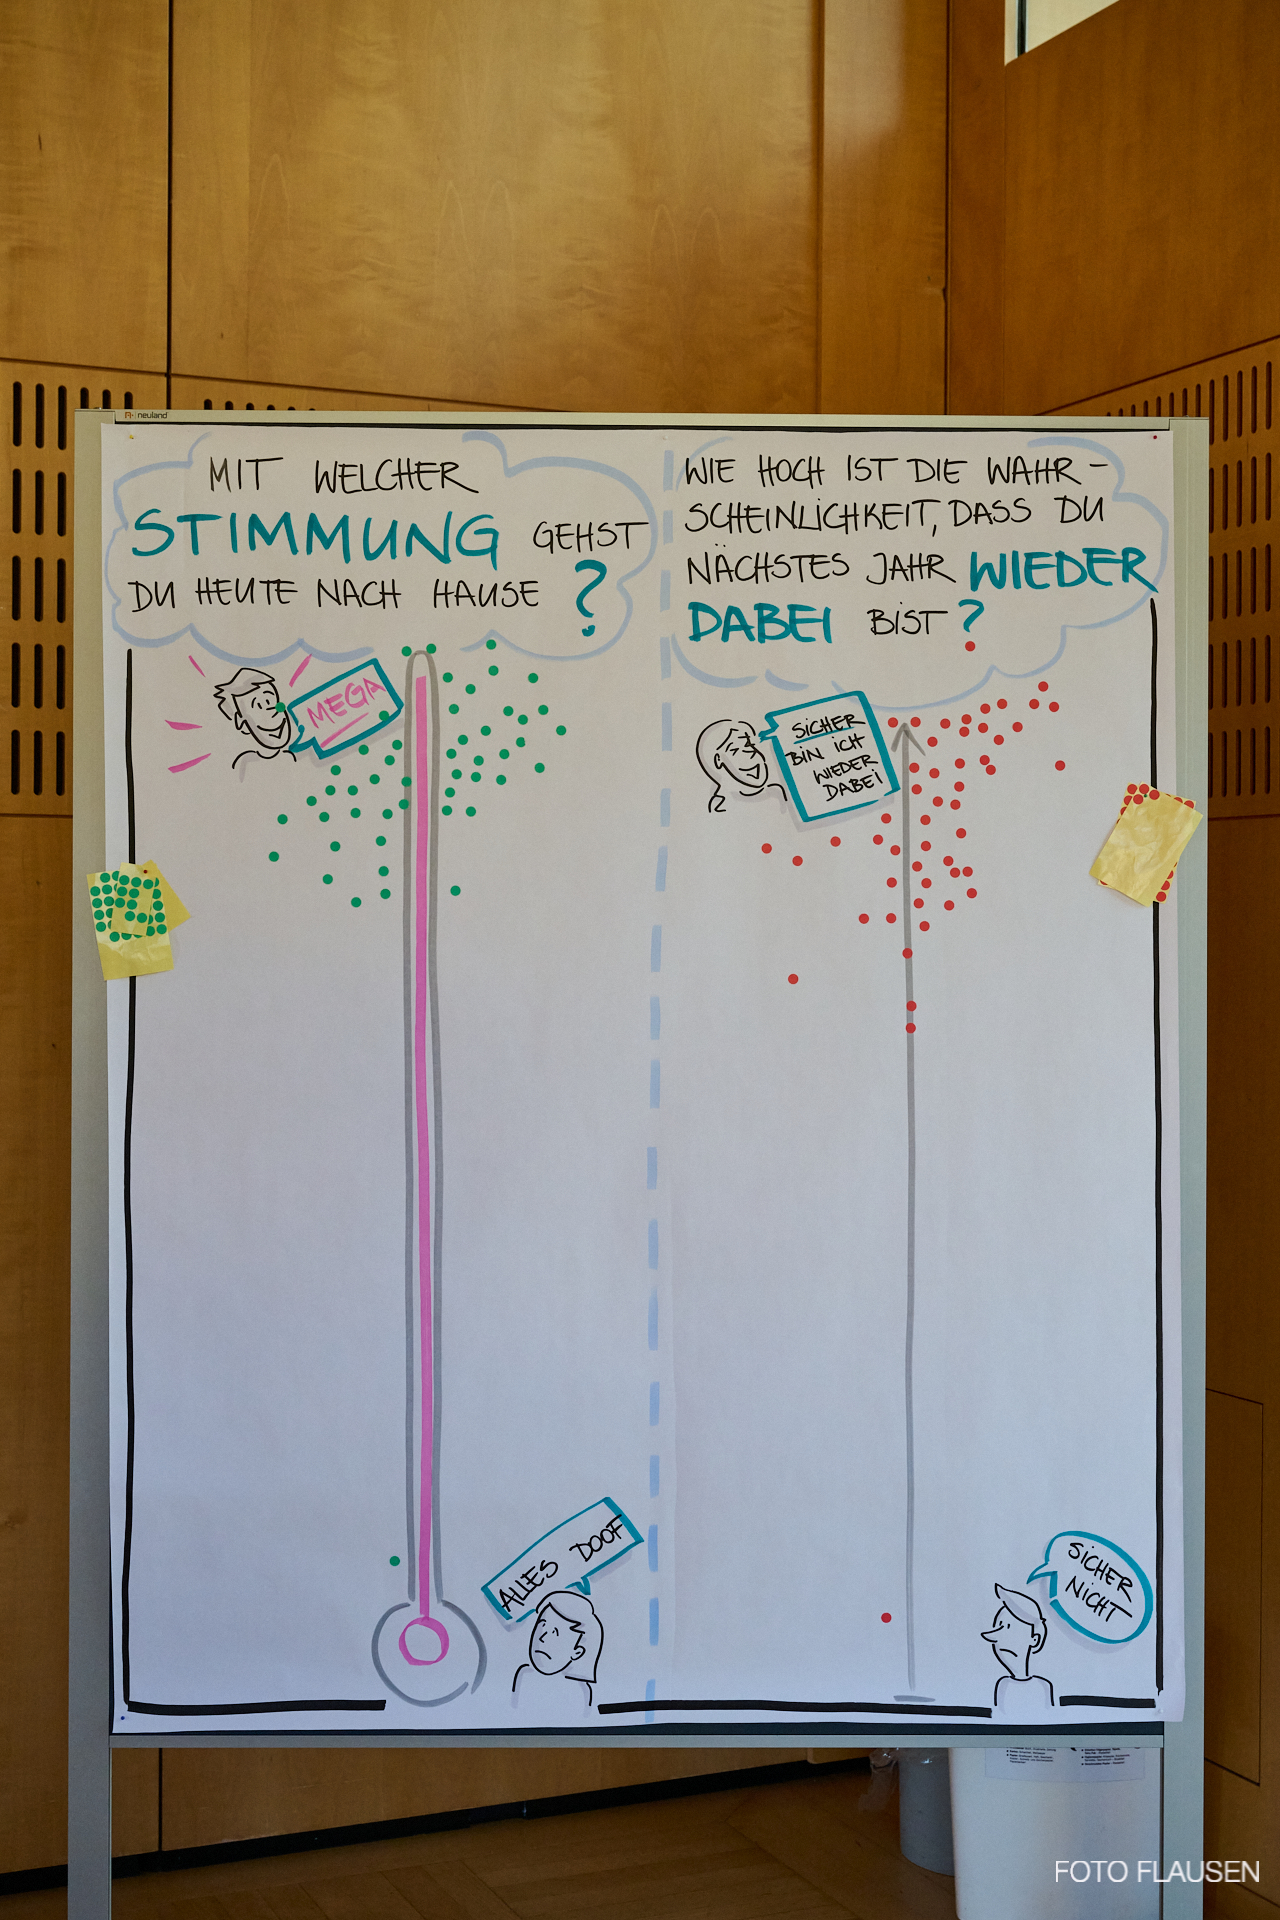 neuland
MIT WELCHER
STIMMUNG GEHST
DU HEUTE NACH HAUSE ?
MEGA
ALLES DOOF
WIE HOCH IST DIE WAHR-
SCHEINLICHKEIT, DASS DU
NÄCHSTES JAHR WIEDER
DABEI BIST ?
SICHER
BIN ICH
WIEDER
DABEI
SICHER
NICHT
FOTO FLAUSEN